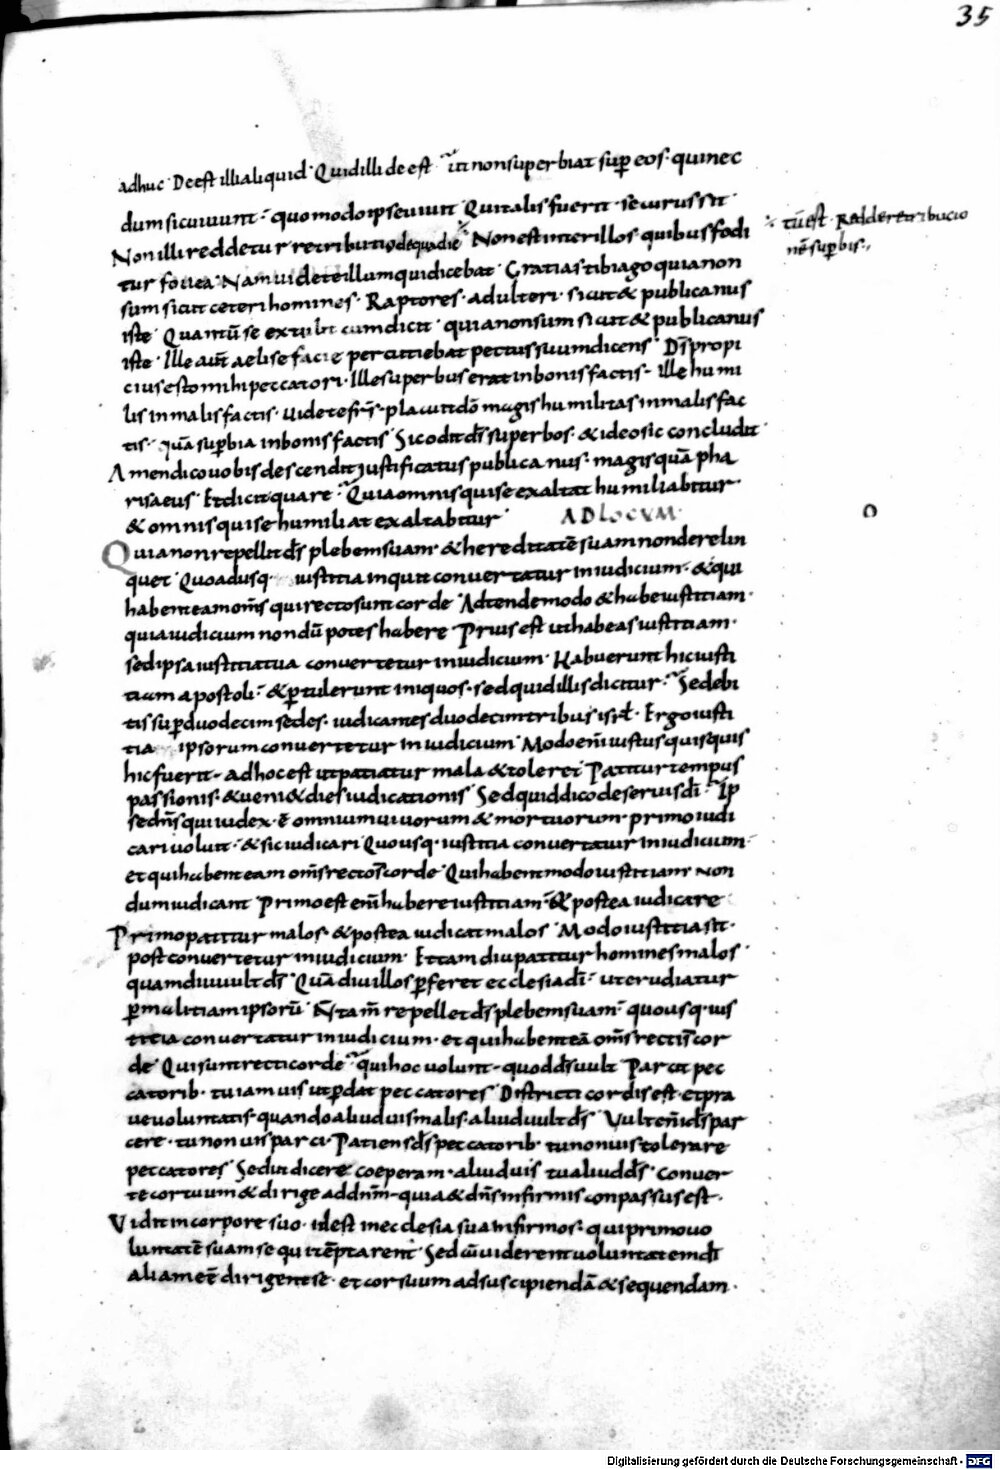 35
adhuc · Deest illi aliquid · Quid illi deest · ut non superbiat sup̄ eos · qui nec
dum sic uiuunt · quomodo ipse uiuit · Qui talis fuerit · securus sit ·
Non illi reddetur retributio de qua dic̄ · Non est inter illos quibus fodi
tū est · Redde retribucio
nē sup̄bis ·,
tur fouea · Nam uidete illum qui dicebat · Gratias tibi ago quia non
sum sicut ceteri homines · Raptores · adulteri · sicut & publicanus
iste · Quantū se extulit cum dicit · quia non sum sicut & publicanus
iste · Ille aut̄ · facie percutiebat pectus suum dicens · Ds̄ propi
cius esto mihi peccatori · Ille superbus erat in bonis factis · ille humi
lis in malis factis · uidete fr̄s · placuit dō magis humilitas in malis fac
tis · quā sup̄bia in bonis factis · Sic odit ds̄ superbos · & ideo sic concludit ·
Amen dico uobis descendit iustificatus publicanus · magis quā pha
risaeus · Et dicit quare · Quia omnis qui se exaltat humiliabitur ·
& omnis qui se humiliat exaltabitur · AD LOCVM ·
Quia non repellit ds̄ plebem suam · & hereditatē suam non derelin
quet · Quoadusq · iustitia inquit conuertatur in iudicium · & qui
habent eam om̄s qui recto sunt corde · Adtende modo & habe iustitiam ·
quia iudicium nondū potes habere · Prius est ut habeas iustitiam ·
sed ipsa iustitia tua conuertetur in iudicium · Habuerunt hic iusti
tiam apostoli · & p̄tulerunt iniquos · sed quid illis dicitur · Sedebi
tis sup̄ duodecim sedes · iudicantes duodecim tribus isrl̄ · Ergo iusti
tia ipsorum conuertetur in iudicium · Modo eni̅ iustus quisquis
hic fuerit · ad hoc est ut patiatur mala & toleret · Patitur tempus
passionis · & ueni& dies iudicationis · Sed quid dico de seruis dī · Ip
se dn̄s qui iudex · ē omnium uiuorum & mortuorum · primo iudi
cari uoluit · & sic iudicari Quousq · iustitia conuertatur in iudicium ·
et qui habent eam om̄s recto s̄ corde · Qui habent modo iustitiam non
dum iudicant · Primo est eni̅ habere iustitiam · & postea iudicare ·
Primo patitur malos · & postea iudicat malos · Modo iustitia sit ·
post conuertetur in iudicium · Et tam diu patitur homines malos
quamdiu uult ds̄ · Quā diu illos p̄feret ecclesia dī · ut erudiatur
p̄ malitiam ipsorū · N̄ tam̄ repellet ds̄ plebem suam · quousq · ius
titia conuertatur in iudicium · et qui habent eā om̄s recti s̄ cor
de · Qui sunt recti corde · qui hoc uolunt · quod ds̄ uult · Parcit pec
catorib · tu iam uis ut p̄dat peccatores · Distorti cordis est · et pra
ue uoluntatis · quando aliud uis malis · aliud uult ds̄ · Vult eni̅ ds̄ par
cere · tu non uis parci · Patiens ds̄ peccatorib · tu non uis tolerare
peccatores · Sed ut dicere coeperam · aliud uis tu aliud ds̄ · Conuer
te cor tuum & dirige ad dn̄m · quia & dn̄s infirmis conpassus est ·
Vidit in corpore suo · id est in ecclesia sua infirmos · qui primo uo
luntatē suam sequi tēptarent · Sed cū uiderent uoluntatem dī
aliam eē dirigent se · et cor suum ad suscipiendā & sequendam ·
Digitalisierung gefördert durch die Deutsche Forschungsgemeinschaft - DFG